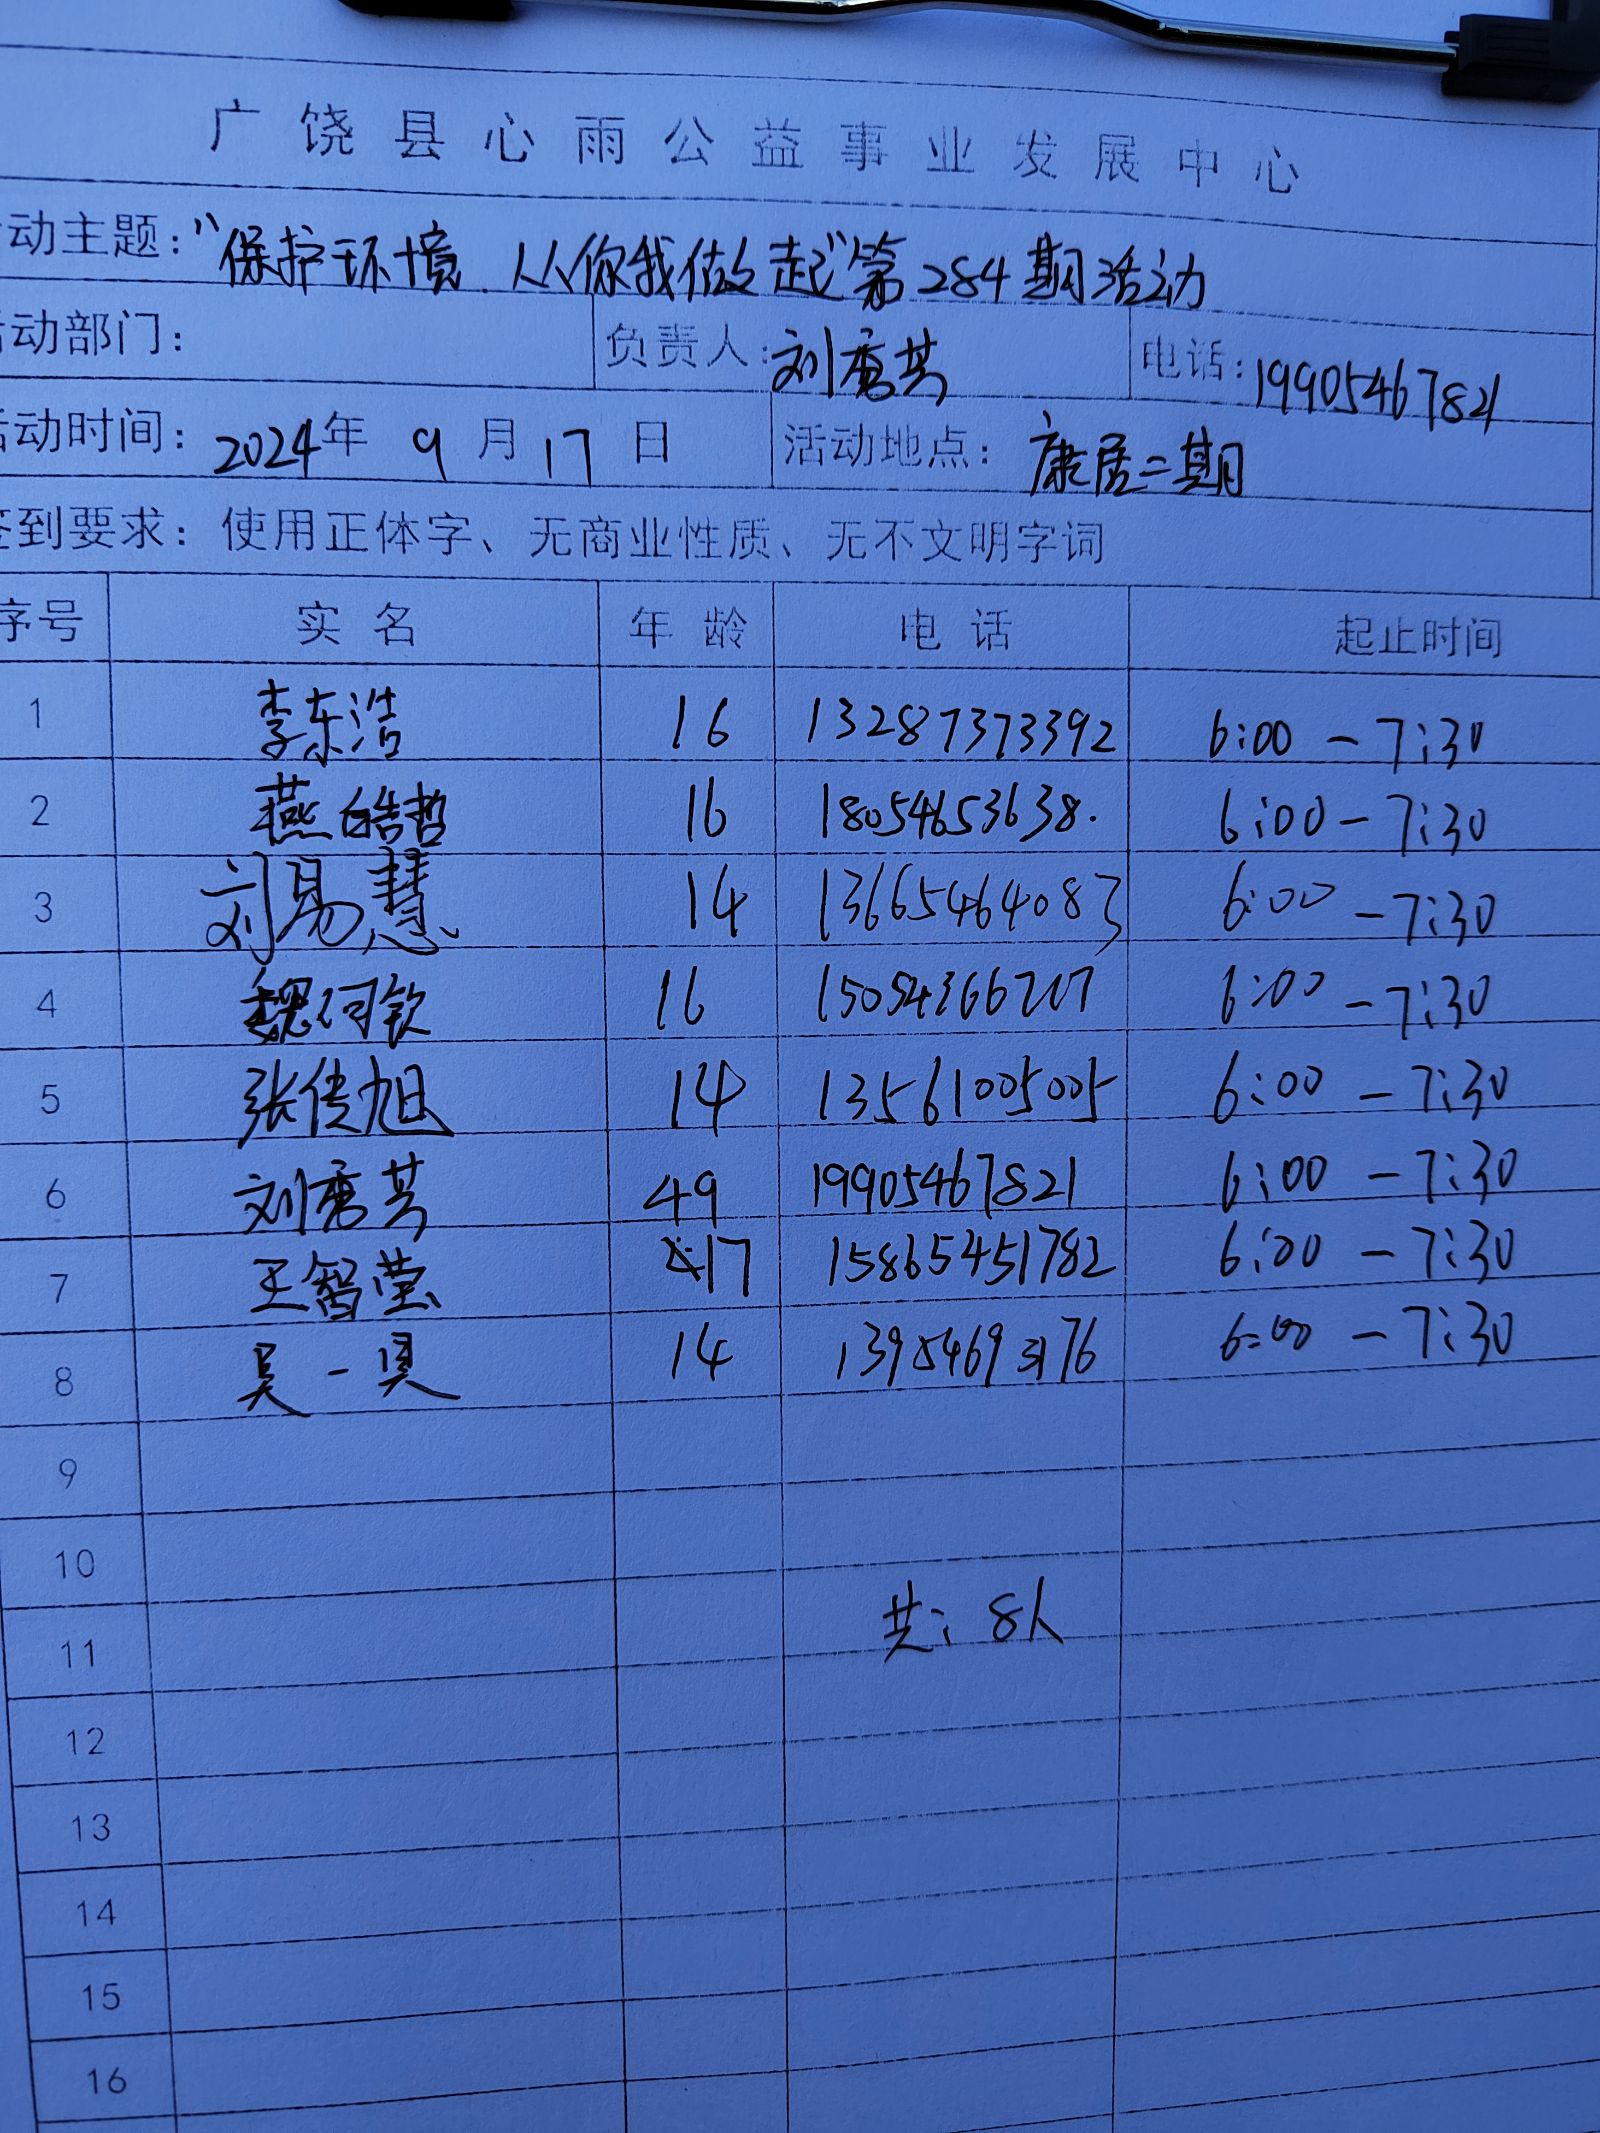 广饶县心雨公益事业发展中心
动主题：“保护环境.从你我做起”第284期活动
活动部门： 负责人：刘秀芳 电话：19905467821
活动时间：2024年9月17日 活动地点：康居二期
签到要求：使用正体字、无商业性质、无不文明字词
序号 实名 年龄 电话 起止时间
1 李东浩 16 13287373392 6:00-7:30
2 燕皓哲 16 18054653638. 6:00-7:30
3 刘易慧 14 13665464083 6:00-7:30
4 魏何钦 16 15054366707 6:00-7:30
5 张传旭 14 13561005005 6:00-7:30
6 刘秀芳 49 19905467821 6:00-7:30
7 王智莹 17 15865451782 6:00-7:30
8 吴一具 14 6:00-7:30
9
10
共：8人
11
12
13
14
15
16